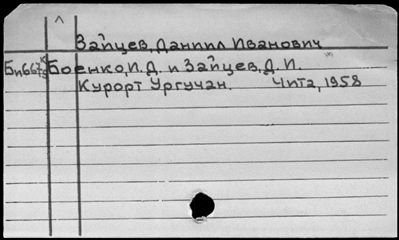 Зайцев, Даниил Иванович
Боенко, И. Д. и Зайцев, Д. И.
Курорт Ургучан. Чита, 1958